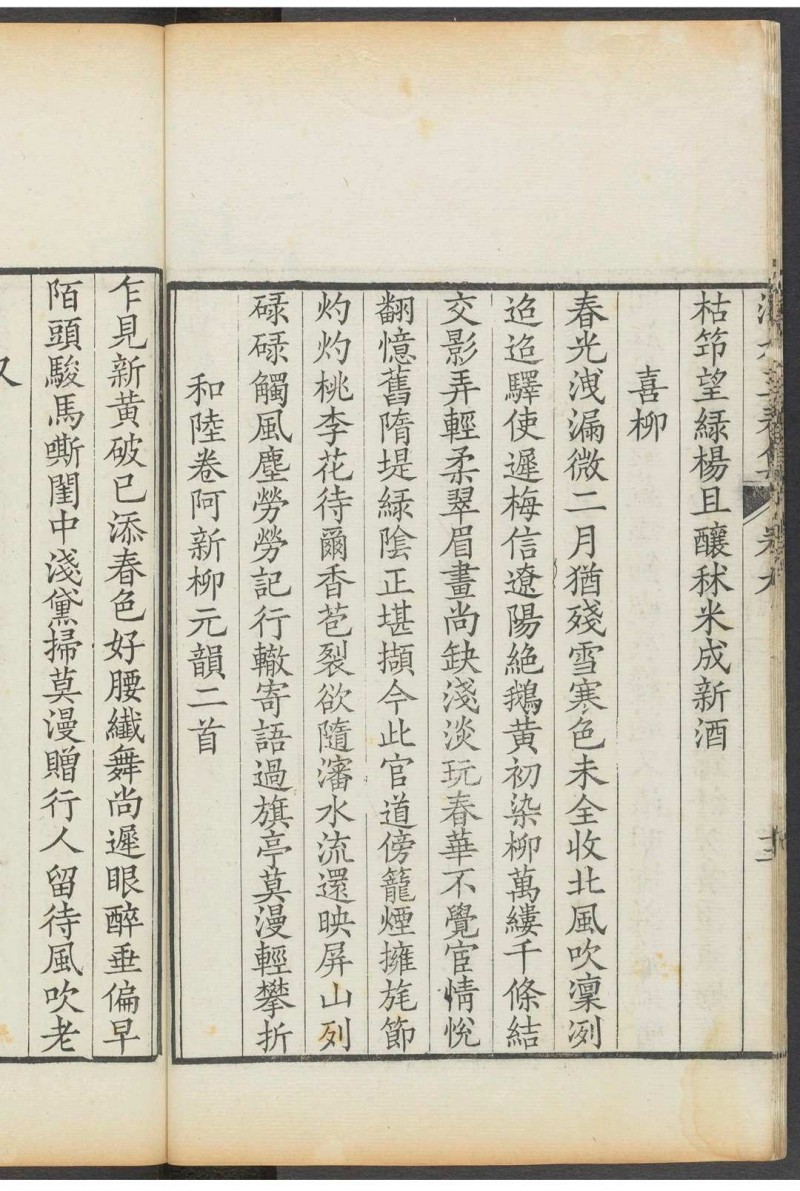 枯筇望綠楊且釀秫米成新酒
喜柳
春光洩漏微二月猶殘雪寒色未全收北風吹凜冽
迢迢驛使遲梅信遼陽絕鵝黃初染柳萬縷千條結
交影弄輕柔翠眉畫尚缺淺淡玩春華不覺宦情悅
翻憶舊隋堤綠陰正堪擷今此官道傍籠煙擁旄節
灼灼桃李花待爾香苞裂欲隨瀋水流還映屏山列
碌碌觸風塵勞勞記行轍寄語過旗亭莫漫輕攀折
和陸卷阿新柳元韻二首
乍見新黃破已添春色好腰纖舞尚遲眼醉垂偏早
陌頭駿馬嘶閨中淺黛掃莫漫贈行人留待風吹老